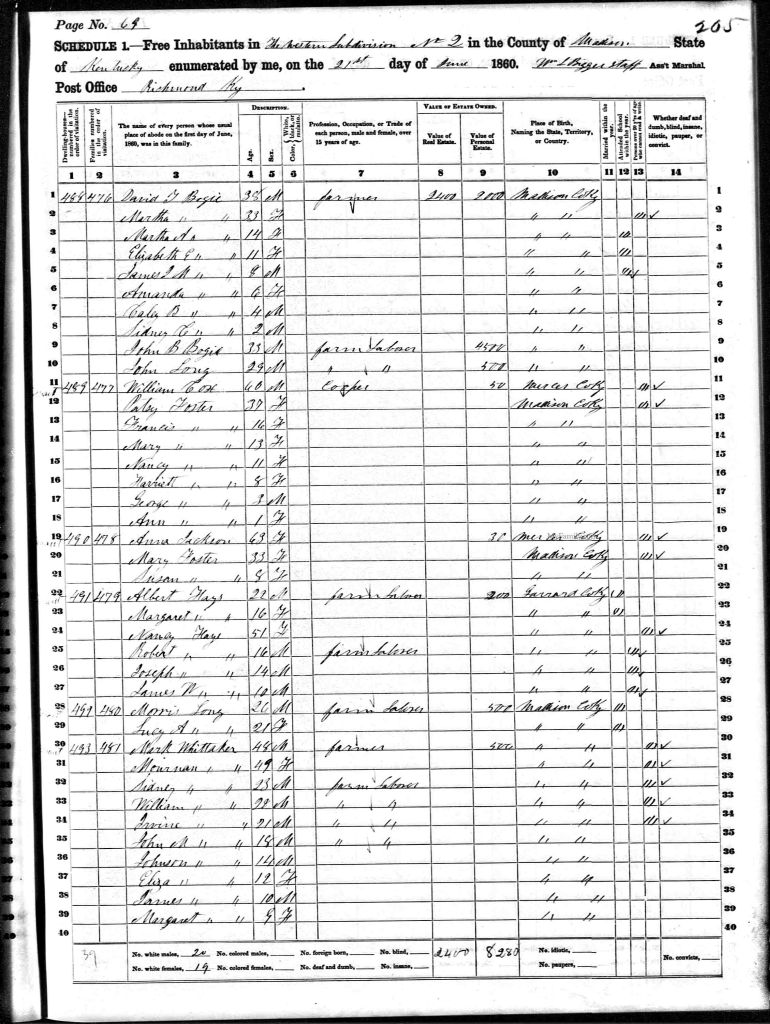 Page No. 69
205
SCHEDULE 1.—Free Inhabitants in The Western Subdivision No 2 in the County of Madison State
of Kentucky enumerated by me, on the 21st day of June 1860. Wm Ass't Marshal
Post Office Richmond Ky
Dwelling-houses—numbered in the order of visitation.
Families numbered in the order of visitation.
The name of every person whose usual place of abode on the first day of June, 1860, was in this family.
DESCRIPTION.
Age.
Sex.
Color, White, black, or mulatto.
Profession, Occupation, or Trade of each person, male and female, over 15 years of age.
VALUE OF ESTATE OWNED.
Value of Real Estate.
Value of Personal Estate.
Place of Birth, Naming the State, Territory, or Country.
Married within the year.
Attended School within the year.
Persons over 20 y'rs of age who cannot read & write.
Whether deaf and dumb, blind, insane, idiotic, pauper, or convict.
1 2 3 4 5 6 7 8 9 10 11 12 13 14
1 488 476 David T Bogie 38 M farmer 2400 2000 Madison Co Ky 1
2 Martha " " 33 F " " /// ✓ 2
3 Martha A " " 14 F " " /// 3
4 Elizabeth E " " 11 F " " /// 4
5 James M " " 8 M " " /// 5
6 Amanda " " 6 F " " 6
7 Caley B " " 4 M " " 7
8 Sidney C " " 2 M " " 8
9 John B Bogie 33 M farm Laborer 4500 " " 9
10 John Long 29 M " " 500 " " 10
11 489 477 William Cose 60 M Cooper 50 Mercer Co Ky /// ✓ 11
12 Patsy Foster 37 F Madison Co Ky /// ✓ 12
13 Francis " " 16 F " " 13
14 Mary " " 13 F " " 14
15 Nancy " " 11 F " " 15
16 Harriet " " 8 F " " 16
17 George " " 3 M " " 17
18 Ann " " 1 F " " 18
19 490 478 Anna Jackson 63 F 30 Mercer Co Ky /// ✓ 19
20 Mary Foster 33 F Madison Co Ky /// ✓ 20
21 Susan " " 8 F " " 21
22 491 479 Albert Hays 22 M farm Laborer 200 Garrard Co Ky /// 22
23 Margaret " " 16 F " " /// 23
24 Nancy Hays 51 F " " /// ✓ 24
25 Robert " " 16 M farm Laborer " " /// 25
26 Joseph " " 14 M " " /// 26
27 James W " " 10 M " " /// 27
28 491 480 Morris Long 26 M farm Laborer 500 Madison Co Ky /// 28
29 Lucy A " " 21 F " " /// 29
30 493 481 Mark Whittaker 48 M farmer 500 " " /// ✓ 30
31 Mournan " " 49 F " " /// ✓ 31
32 Sidney " " 23 M farm Laborer " " /// ✓ 32
33 William " " 22 M " " " " /// ✓ 33
34 Irvine " " 21 M " " " " /// ✓ 34
35 John M " " 18 M " " " " 35
36 Johnson " " 14 M " " 36
37 Eliza " " 12 F " " 37
38 James " " 10 M " " 38
39 Margaret " " 9 F " " 39
40 40
39 No. white males, 20 No. colored males, No. foreign born, No. blind, 2400 8280 No. idiotic, No. convicts,
No. white females, 19 No. colored females, No. deaf and dumb, No. insane, No. paupers,